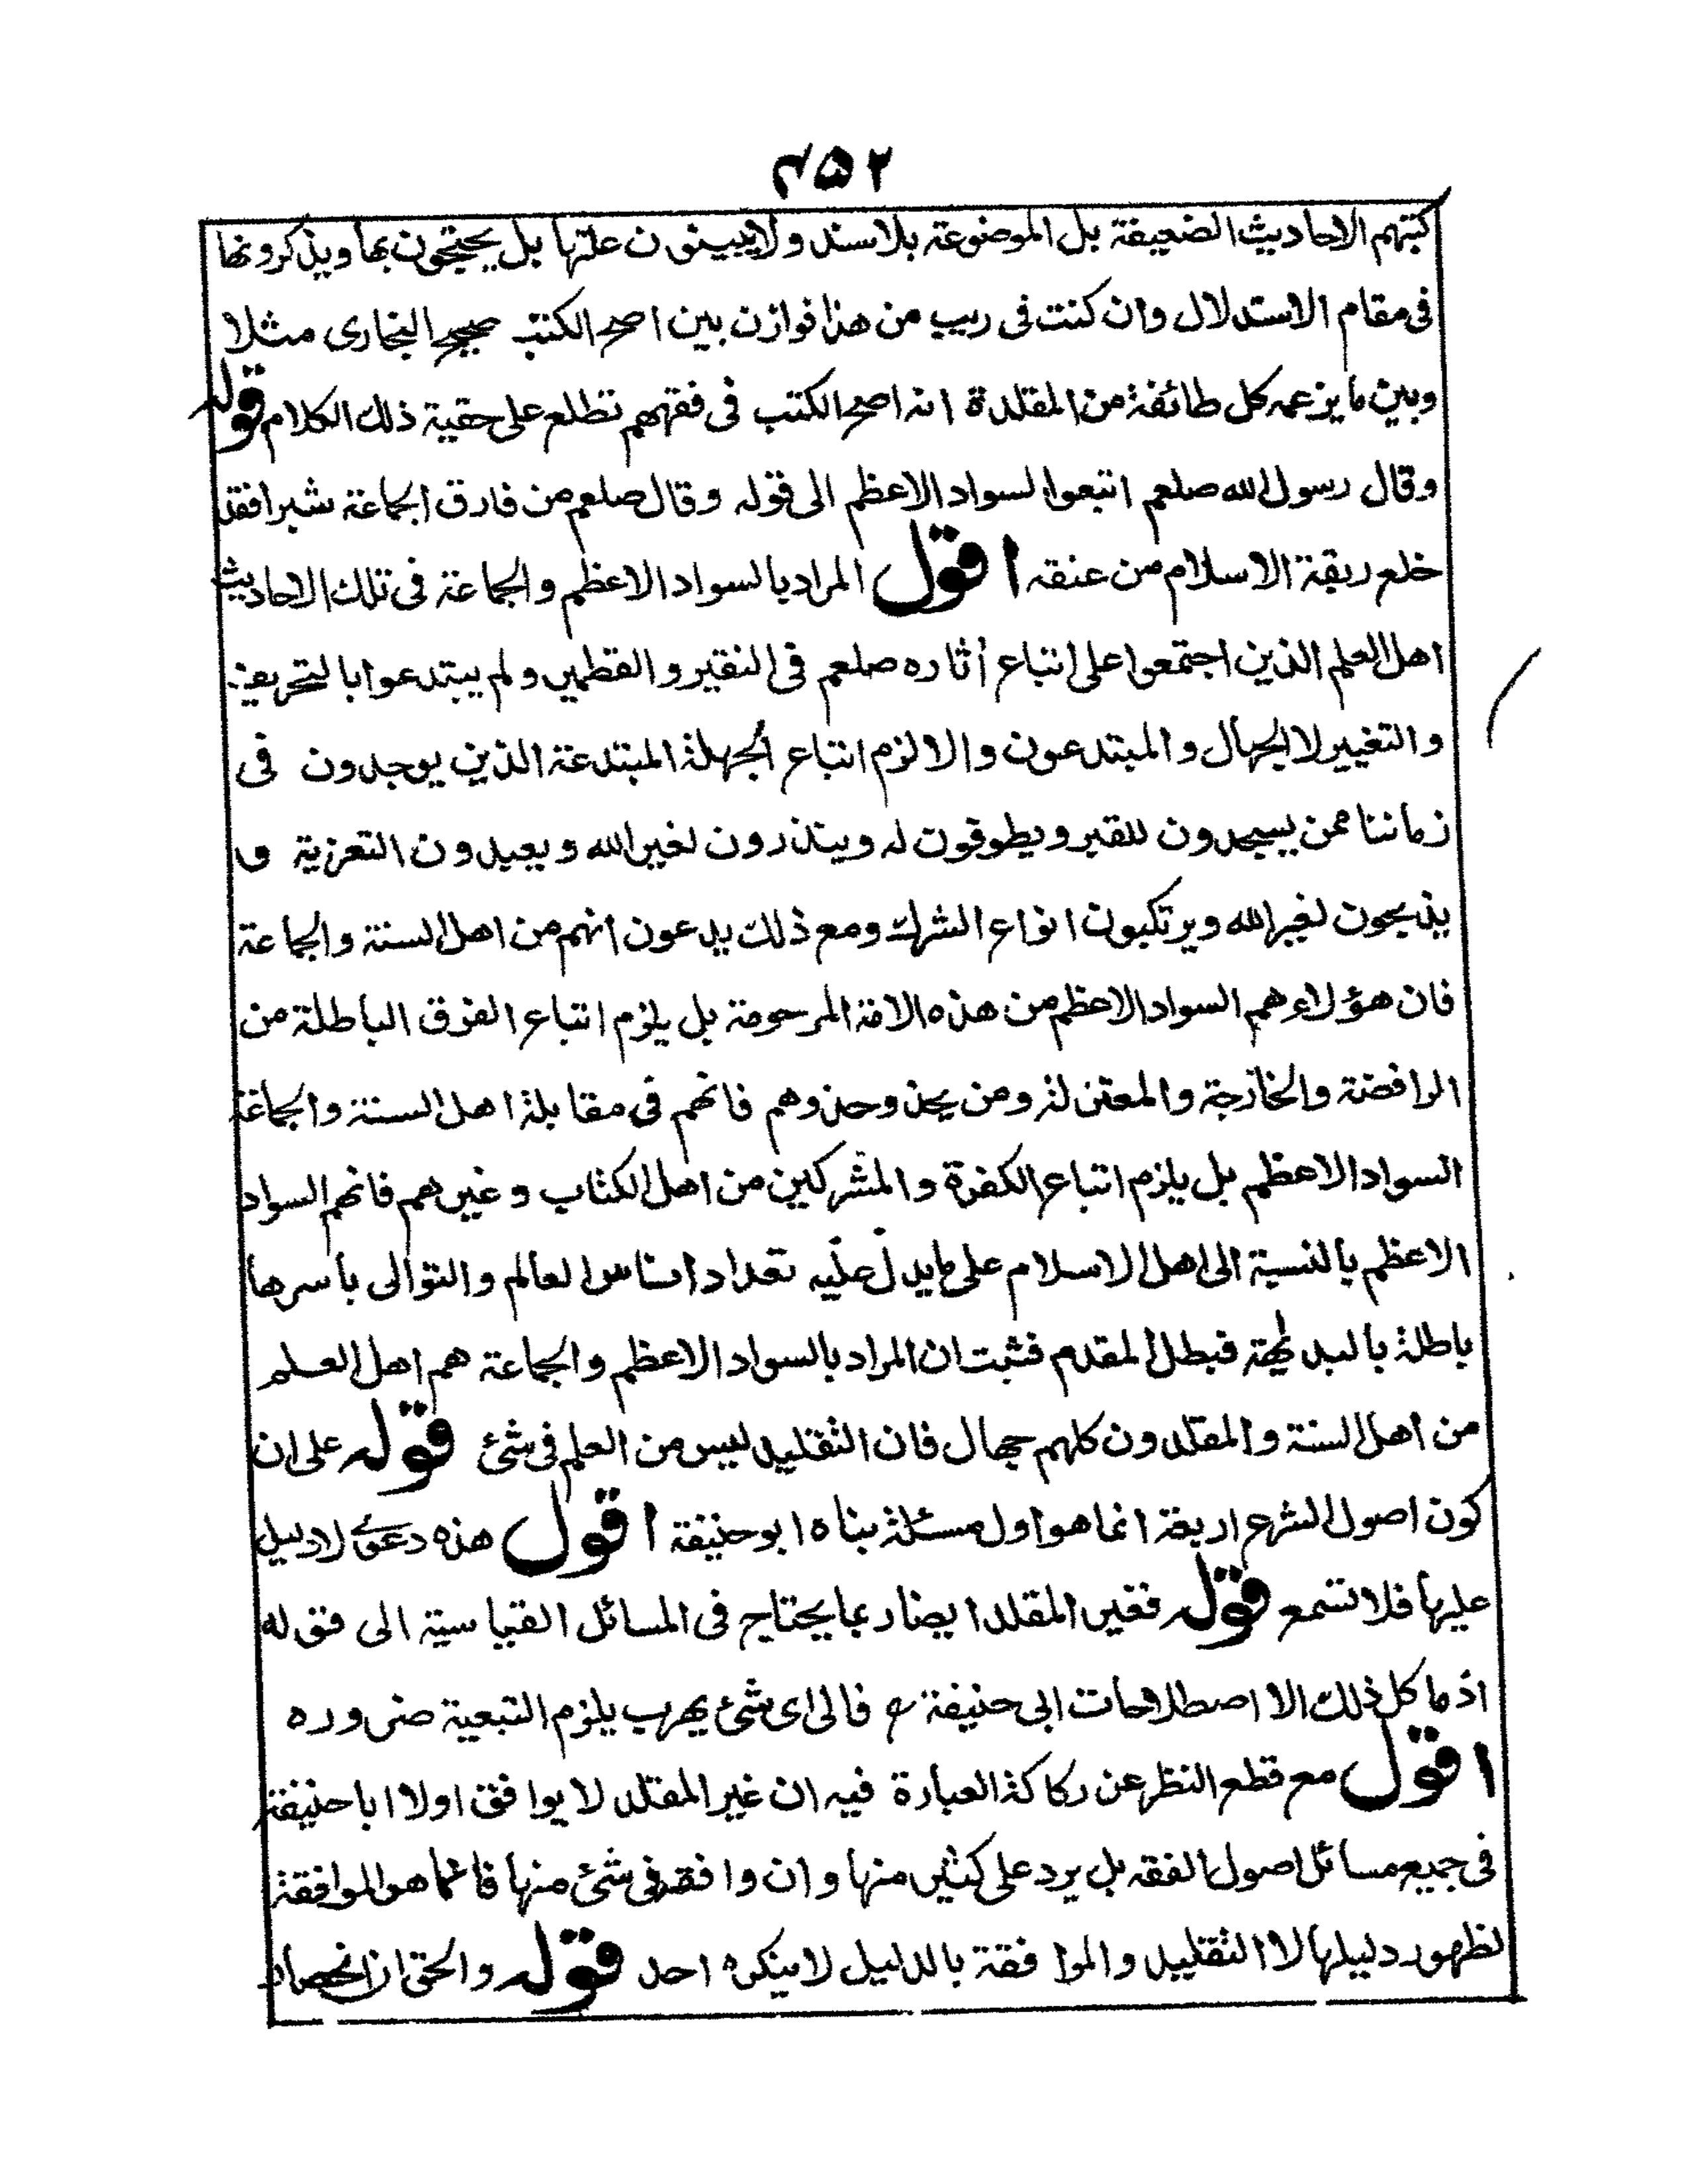 ۴۵۲
كتبهم الاحاديث الضعيفة بل الموضوعة بلاسند ولايبينون علتها بل يحتجون بها ويذكرونها
فى مقام الاستدلال وان كنت فى ريب من هذا فوازن بين اصح الكتب صحيح البخارى مثلا
وبين ما يزعمه كل طائفة من المقلدة انه اصح الكتب فى فقههم تطلع على حقية ذلك الكلام قوله
وقال رسول الله صلعم اتبعوا السواد الاعظم الى قوله وقال صلعم من فارق الجماعة شبرا فقد
خلع ربقة الاسلام من عنقه اقول المراد بالسواد الاعظم والجماعة فى تلك الاحاديث
اهل العلم الذين اجتمعوا على اتباع أثاره صلعم فى النقير والقطمير ولم يبتدعوا بالتحريف
والتغيير لا الجهال والمبتدعون والا لزم اتباع الجهلة المبتدعة الذين يوجدون فى
زماننا ممن يسجدون للقبر ويطوفون له وينذرون لغير الله ويعبدون التعزية و
يذبحون لغير الله ويرتكبون انواع الشرك ومع ذلك يدعون انهم من اهل السنة والجماعة
فان هؤلاء هم السواد الاعظم من هذه الامة المرحومة بل يلزم اتباع الفرق الباطلة من
الرافضة والخارجة والمعتزلة ومن يحذ وحذوهم فانهم فى مقابلة اهل السنة والجماعة
السواد الاعظم بل يلزم اتباع الكفرة والمشركين من اهل الكتاب وغيرهم فانهم السواد
الاعظم بالنسبة الى اهل الاسلام على ما يدل عليه تعداد اناس العالم والتوالى بأسرها
باطلة بالبديهة فبطل المقدم فثبت ان المراد بالسواد الاعظم والجماعة هم اهل العلم
من اهل السنة والمقلدون كلهم جهال فان التقليد ليس من العلم فى شئ قوله على ان
كون اصول الشرع اربعة انما هو اول مسئلة بناه ابوحنيفة اقول هذه دعوى لادليل
عليها فلا تسمع قوله فغير المقلد ايضا ربما يحتاج فى المسائل القياسية الى قوله
اذ ما كل ذلك الا اصطلاحات ابى حنيفة فالى اى شئ يهرب يلزم التبعية ضروره
اقول مع قطع النظر عن ركاكة العبارة فيه ان غير المقلد لا يوافق اولا اباحنيفة
فى جميع مسائل اصول الفقه بل يرد على كثير منها وان وافقه فى شئ منها فانما هو الموافقة
لظهور دليلها لا التقليد والموافقة بالدليل لاينكره احد قوله والحق ان انحصار